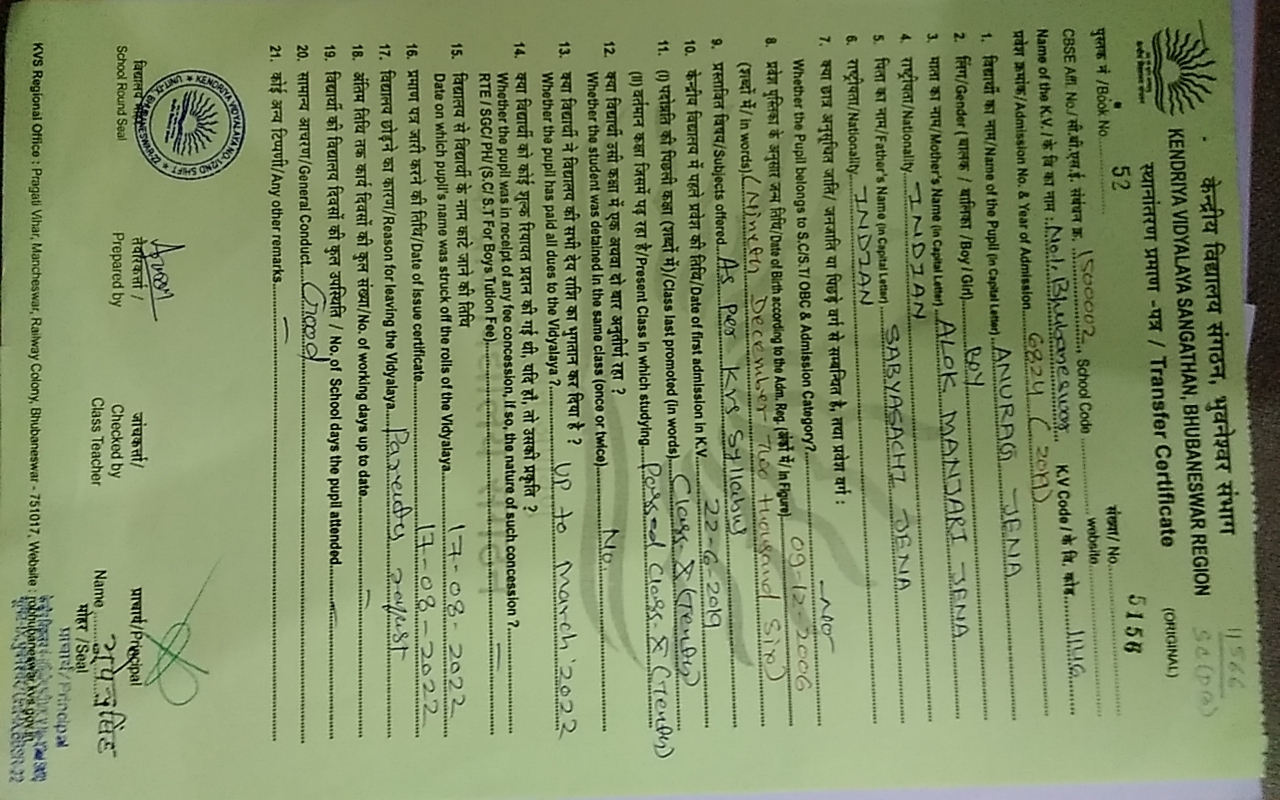 11566
Sc(Da)
केन्द्रीय विद्यालय संगठन, भुवनेश्वर संभाग
KENDRIYA VIDYALAYA SANGATHAN, BHUBANESWAR REGION
(ORIGINAL)
स्थानांतरण प्रमाण -पत्र / Transfer Certificate
पुस्तक नं /Book No. 52 संख्या/ No. 5156
CBSE Affl. No./ सी.बी.एस.ई. संबंधन क्र. 1500002 School Code website
Name of the K.V./ के वि का नाम : No.1, Bhubaneswar K.V Code / के वि. कोड 1116
प्रवेश क्रमांक/Admission No. & Year of Admission 6824 (2019)
1. विद्यार्थी का नाम/Name of the Pupil (in Capital Letter) ANURAG JENA
2. लिंग/Gender (बालक / बालिका /Boy / Girl) Boy
3. माता का नाम/Mother's Name (in Capital Letter) ALOK MANJARI JENA
4. राष्ट्रीयता/Nationality INDIAN
5. पिता का नाम/Father's Name (in Capital Letter) SABYASACHI JENA
6. राष्ट्रीयता/Nationality INDIAN
7. क्या छात्र अनुसूचित जाति/ जनजाति या पिछड़े वर्ग से सम्बन्धित है, तथा प्रवेश वर्ग :
Whether the Pupil belongs to S.C/S.T/ OBC & Admission Category? No
8. प्रवेश पुस्तिका के अनुसार जन्म तिथि/Date of Birth according to the Adm. Reg. (अंकों में/ In Figure) 09-12-2006
(शब्दों में/ In words) (Nineth December Two thousand Six)
9. प्रस्तावित विषय/Subjects offered As per KVS Syllabus
10. केन्द्रीय विद्यालय में पहले प्रवेश की तिथि/Date of first admission in K.V. 22-6-2019
11. (I) पदोन्नति की पिछली कक्षा (शब्दों में)/Class last promoted (in words) Class-X (Tenth)
(II) वर्तमान कक्षा जिसमें पढ़ रहा है/Present Class in which studying Passed Class-X (Tenth)
12. क्या विद्यार्थी उसी कक्षा में एक अथवा दो बार अनुतीर्ण रहा ?
Whether the student was detained in the same class (once or twice) No
13. क्या विद्यार्थी ने विद्यालय की सभी देय राशि का भुगतान कर दिया है ?
Whether the pupil has paid all dues to the Vidyalaya ? UP to March '2022
14. क्या विद्यार्थी को कोई शुल्क रियायत प्रदान की गई थी, यदि हाँ, तो उसकी प्रकृति ?
Whether the pupil was in receipt of any fee concession, if so, the nature of such concession ?
RTE / SGC/ PH /(S.C/ S.T For Boys Tution Fee) —
15. विद्यालय से विद्यार्थी के नाम काटे जाने की तिथि
Date on which pupil's name was struck off the rolls of the Vidyalaya 17-08-2022
16. प्रमाण पत्र जारी करने की तिथि/Date of issue certificate 17-08-2022
17. विद्यालय छोड़ने का कारण/Reason for leaving the Vidyalaya
18. अंतिम तिथि तक कार्य दिवसों की कुल संख्या/No. of working days up to date —
19. विद्यार्थी की विद्यालय दिवसों की कुल उपस्थिति / No. of School days the pupil attended —
20. सामान्य आचरण/General Conduct Good
21. कोई अन्य टिप्पणी/Any other remarks —
KENDRIYA VIDYALAYA NO.1
UNIT-IX, BHUBANESWAR-22
विद्यालय
School Round Seal
Prepared by
जांचकर्ता/
Checked by
Class Teacher
प्राचार्य/Principal
Name
मोहर /Seal
प्राचार्य / Principal
KVS Regional Office : Pragati Vihar, Mancheswar, Railway Colony, Bhubaneswar - 751017, Website : robhubaneswar.kvs.gov.in